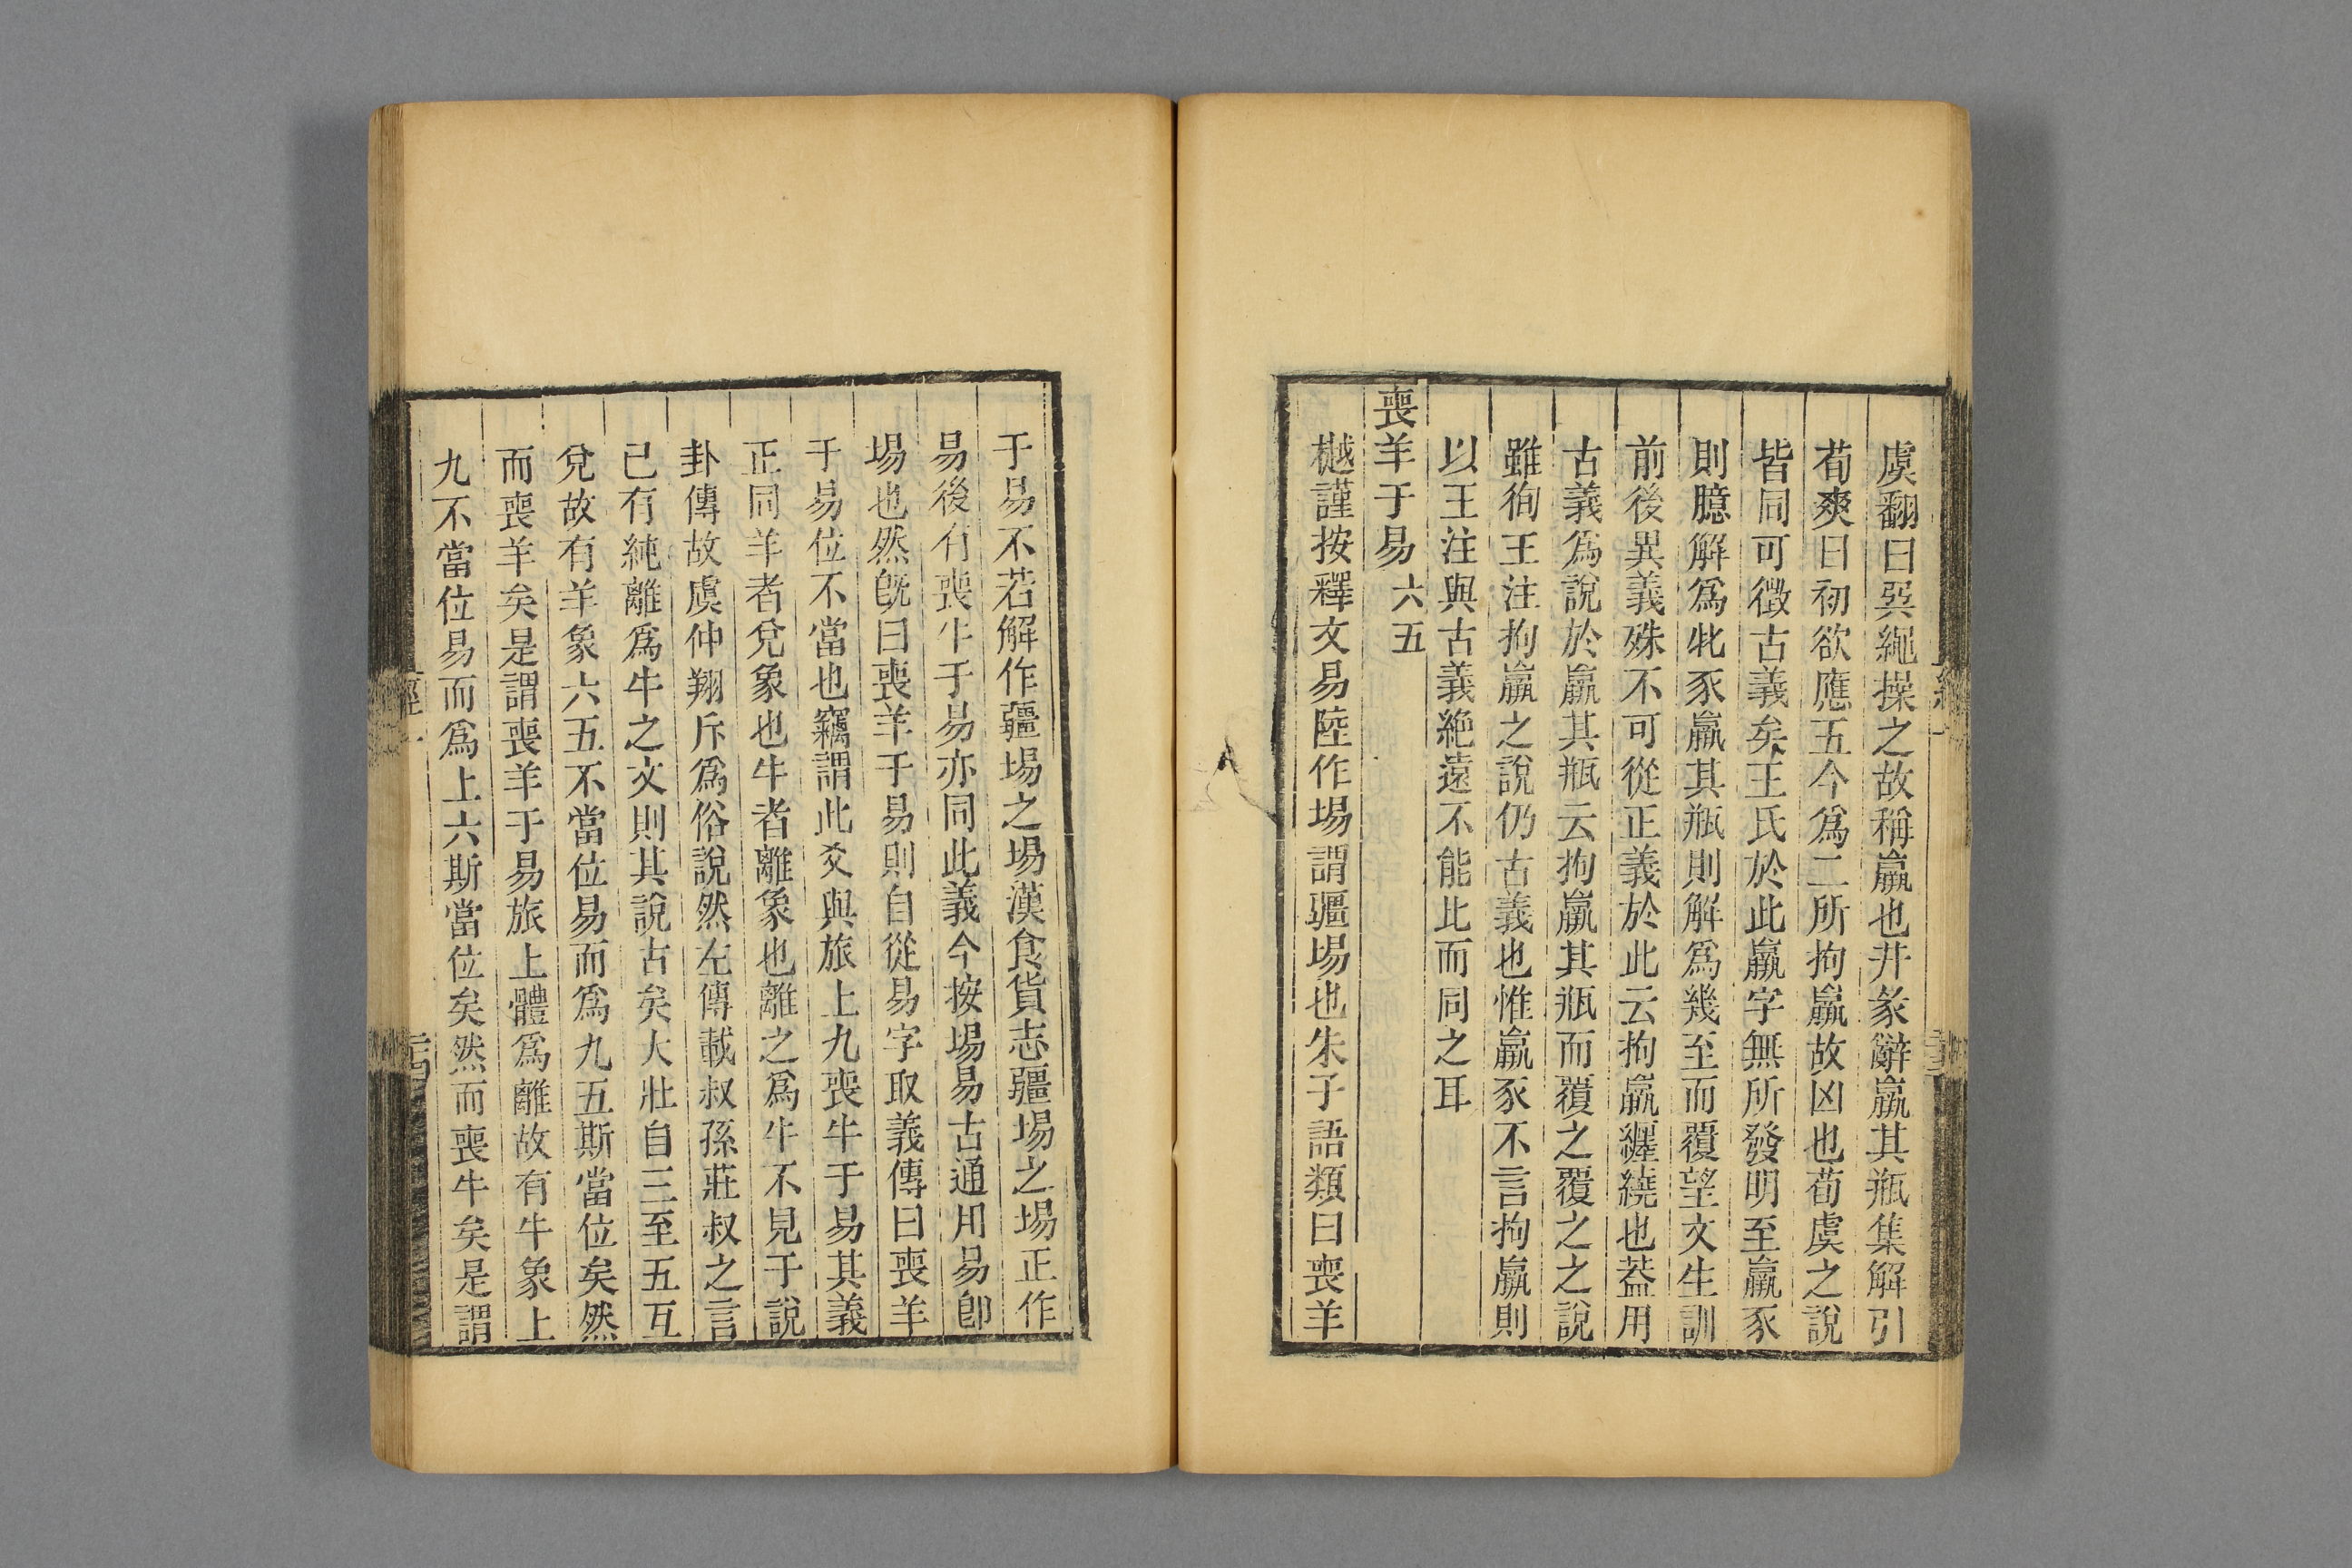 虞翻曰巽繩操之故稱羸也井彖辭羸其瓶集解引
荀爽曰初欲應五今爲二所拘羸故凶也荀虞之說
皆同可徵古義矣王氏於此羸字無所發明至羸豕
則臆解爲牝豕羸其瓶則解爲幾至而覆望文生訓
前後異義殊不可從正義於此云拘羸纒繞也葢用
古義爲說於羸其瓶云拘羸其瓶而覆之覆之之說
雖徇王注拘羸之說仍古義也惟羸豕不言拘羸則
以王注與古義絶遠不能比而同之耳
喪羊于易六五
樾謹按釋文易陸作埸謂疆埸也朱子語類曰喪羊
于易不若解作疆埸之埸漢食貨志疆埸之埸正作
易後有喪牛于易亦同此義今按埸易古通用易卽
埸也然旣曰喪羊于易則自從易字取義傳曰喪羊
于易位不當也竊謂此爻與旅上九喪牛于易其義
正同羊者兌象也牛者離象也離之爲牛不見于說
卦傳故虞仲翔斥爲俗說然左傳載叔孫莊叔之言
已有純離爲牛之文則其說古矣大壯自三至五互
兌故有羊象六五不當位易而爲九五斯當位矣然
而喪羊矣是謂喪羊于易旅上體爲離故有牛象上
九不當位易而爲上六斯當位矣然而喪牛矣是謂